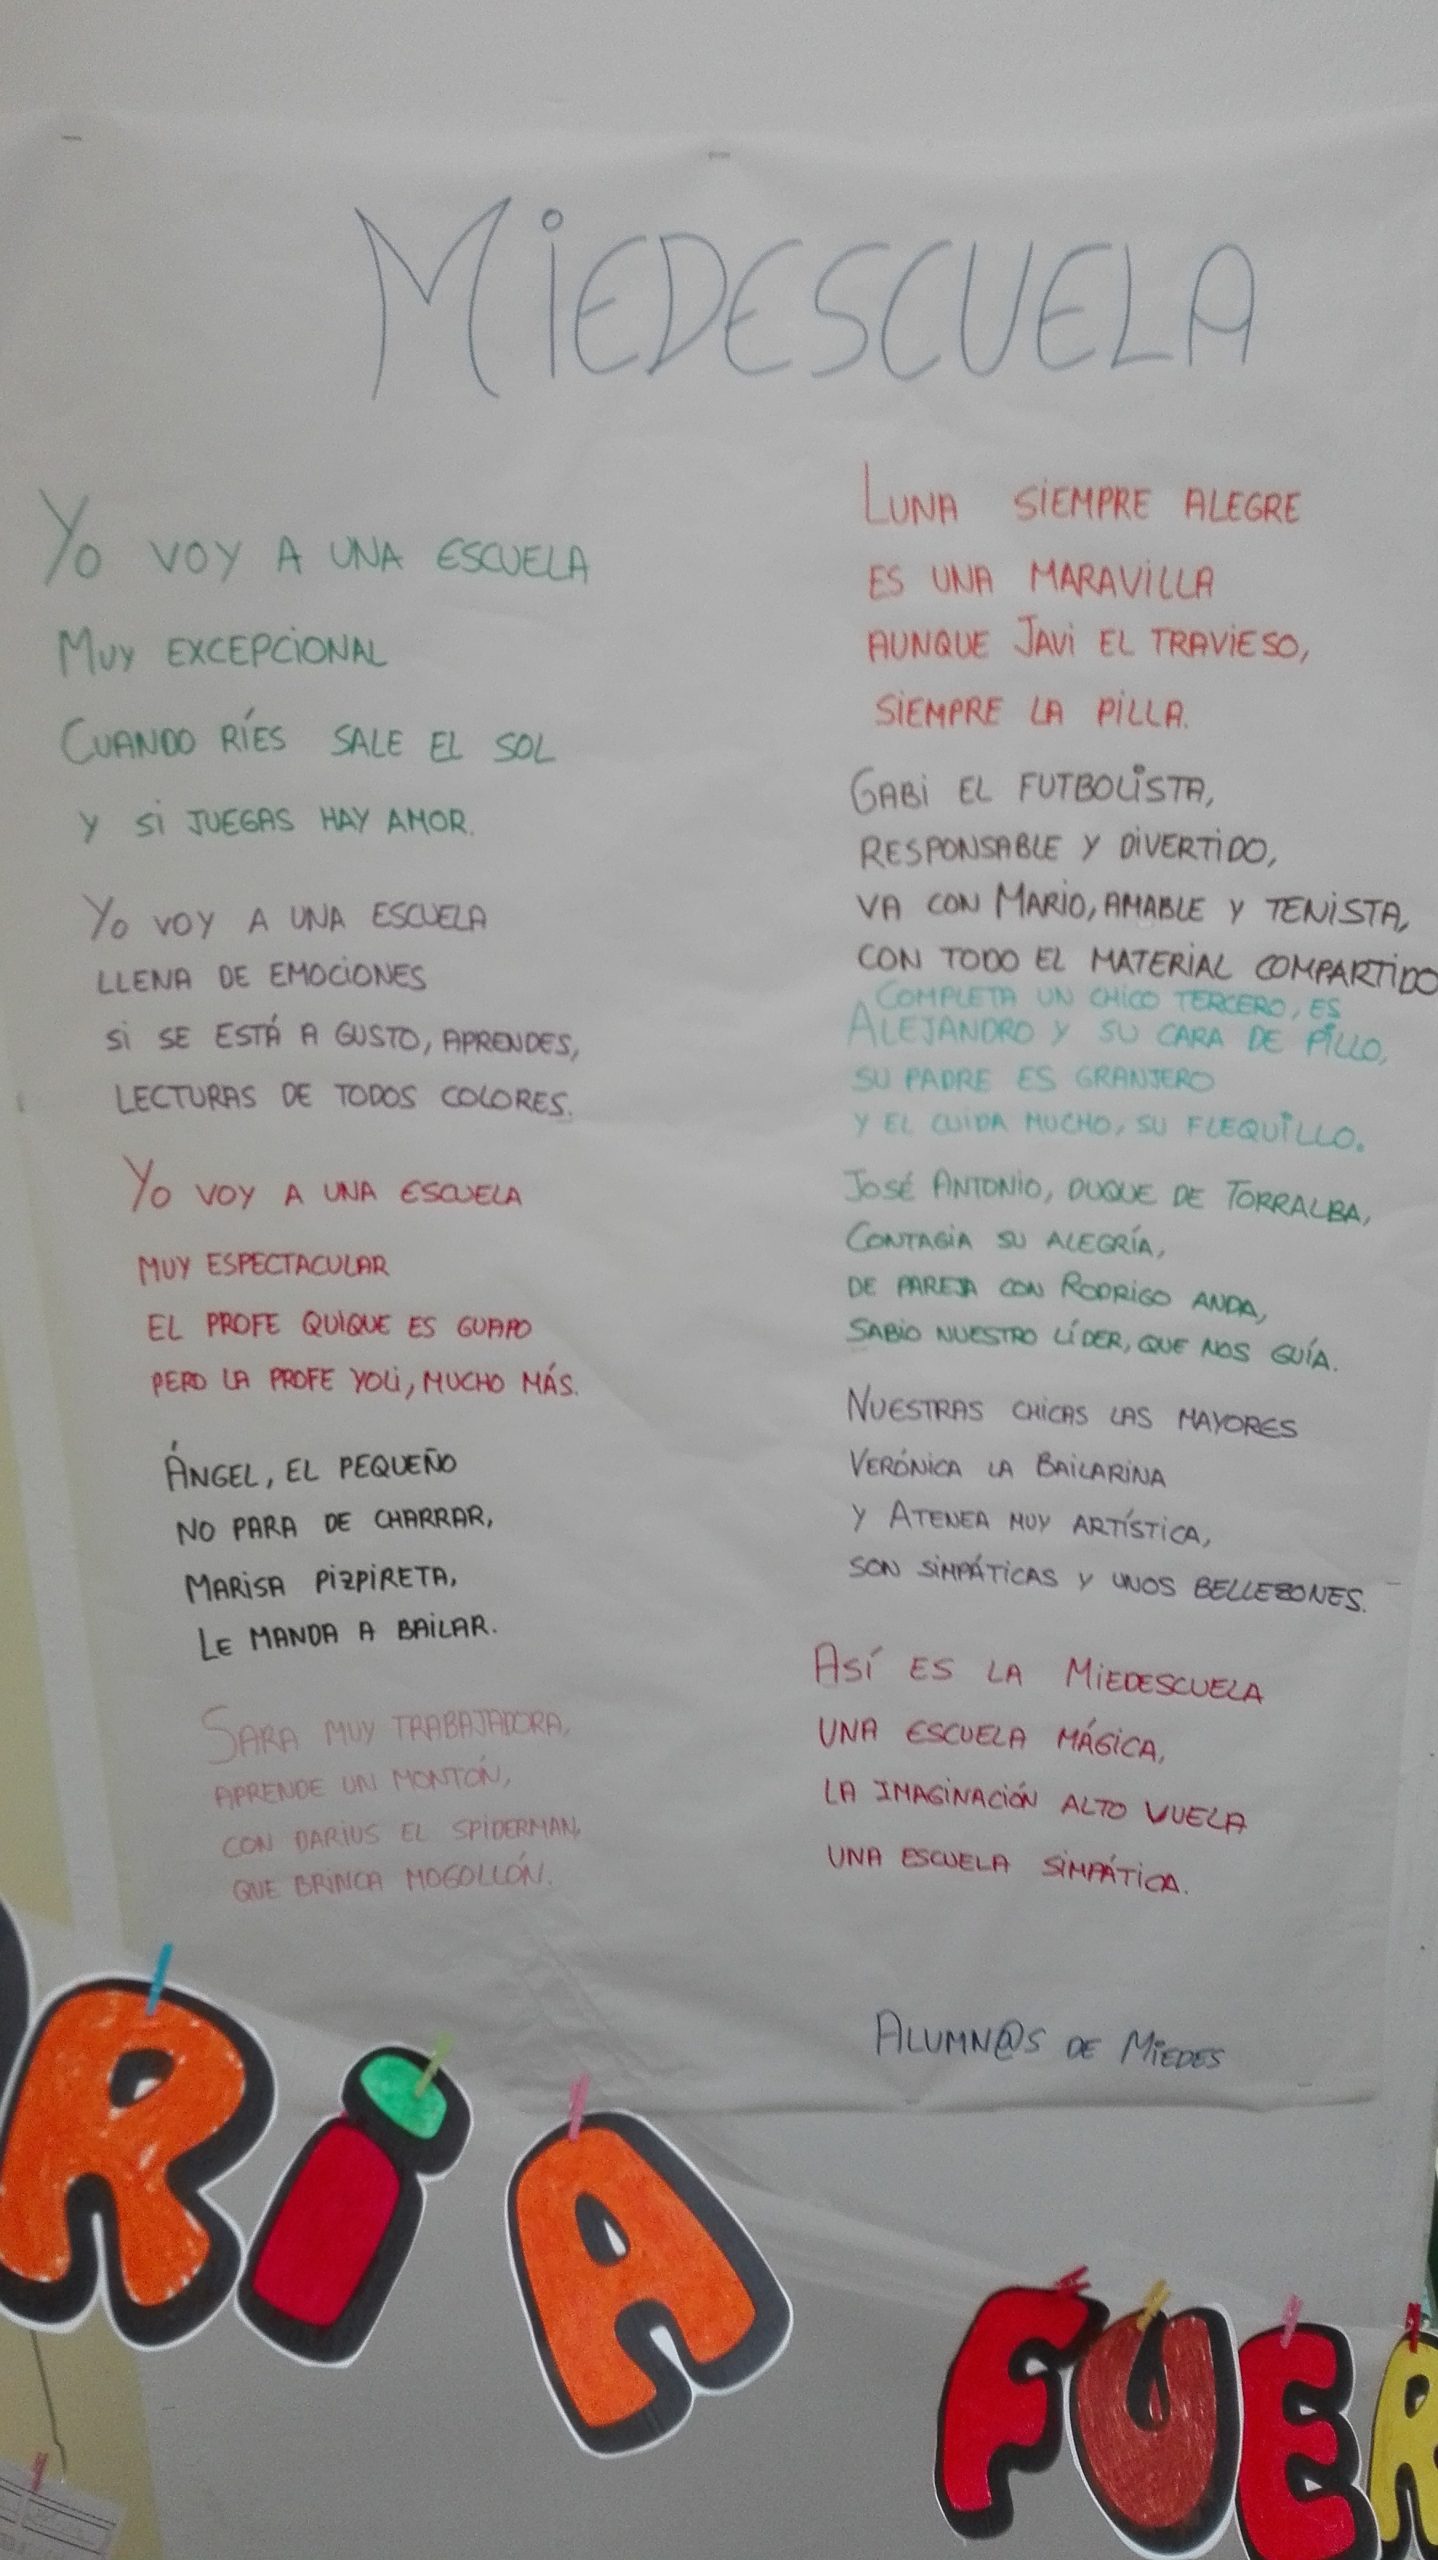 MiEDESCUELA
YO VOY A UNA ESCUELA
MUY EXCEPCIONAL
CUANDO RÍES SALE EL SOL
Y Si JUEGAS HAY AMOR.
YO VOY A UNA ESCUELA
LLENA DE EMOCIONES
Si SE ESTÁ A GUSTO, APRENDES,
LECTURAS DE TODOS COLORES.
YO VOY A UNA ESCUELA
MUY ESPECTACULAR
EL PROFE QUIQUE ES GUAPO
PERO LA PROFE YOLI, MUCHO MÁS.
ÁNGEL, EL PEQUEÑO
NO PARA DE CHARRAR,
MARISA PIZPIRETA,
LE MANDA A BAILAR.
SARA MUY TRABAJADORA,
APRENDE UN MONTÓN,
CON DARIUS EL SPIDERMAN,
QUE BRINCA MOGOLLÓN.
LUNA SIEMPRE ALEGRE
ES UNA MARAVILLA
AUNQUE JAVI EL TRAVIESO,
SIEMPRE LA PILLA.
GABI EL FUTBOLISTA,
RESPONSABLE Y DIVERTIDO,
VA CON MARIO, AMABLE Y TENISTA,
CON TODO EL MATERIAL COMPARTIDO
COMPLETA UN CHICO TERCERO, ES
ALEJANDRO Y SU CARA DE PILLO,
SU PADRE ES GRANJERO
Y EL CUIDA MUCHO, SU FLEQUILLO.
JOSÉ ANTONIO, DUQUE DE TORRALBA,
CONTAGIA SU ALEGRÍA,
DE PAREJA CON RODRIGO ANDA,
SABIO NUESTRO LÍDER, QUE NOS GUÍA.
NUESTRAS CHICAS LAS MAYORES
VERÓNICA LA BAILARINA
Y ATENEA MUY ARTÍSTICA,
SON SIMPÁTICAS Y UNOS BELLEZONES.
ASÍ ES LA MIEDESCUELA
UNA ESCUELA MÁGICA,
LA IMAGINACIÓN ALTO VUELA
UNA ESCUELA SIMPÁTICA.
ALUMN@S DE MIEDES
RiA FUER